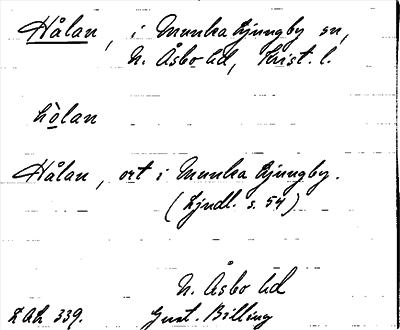 Hålan, i Munka Ljungby sn,
N. Åsbo hd, Krist. l.
hålan
Hålan, ort i Munka Ljungby.
(Ljndl. s. 54)
N. Åsbo hd
LAL 339. Gust. Billing